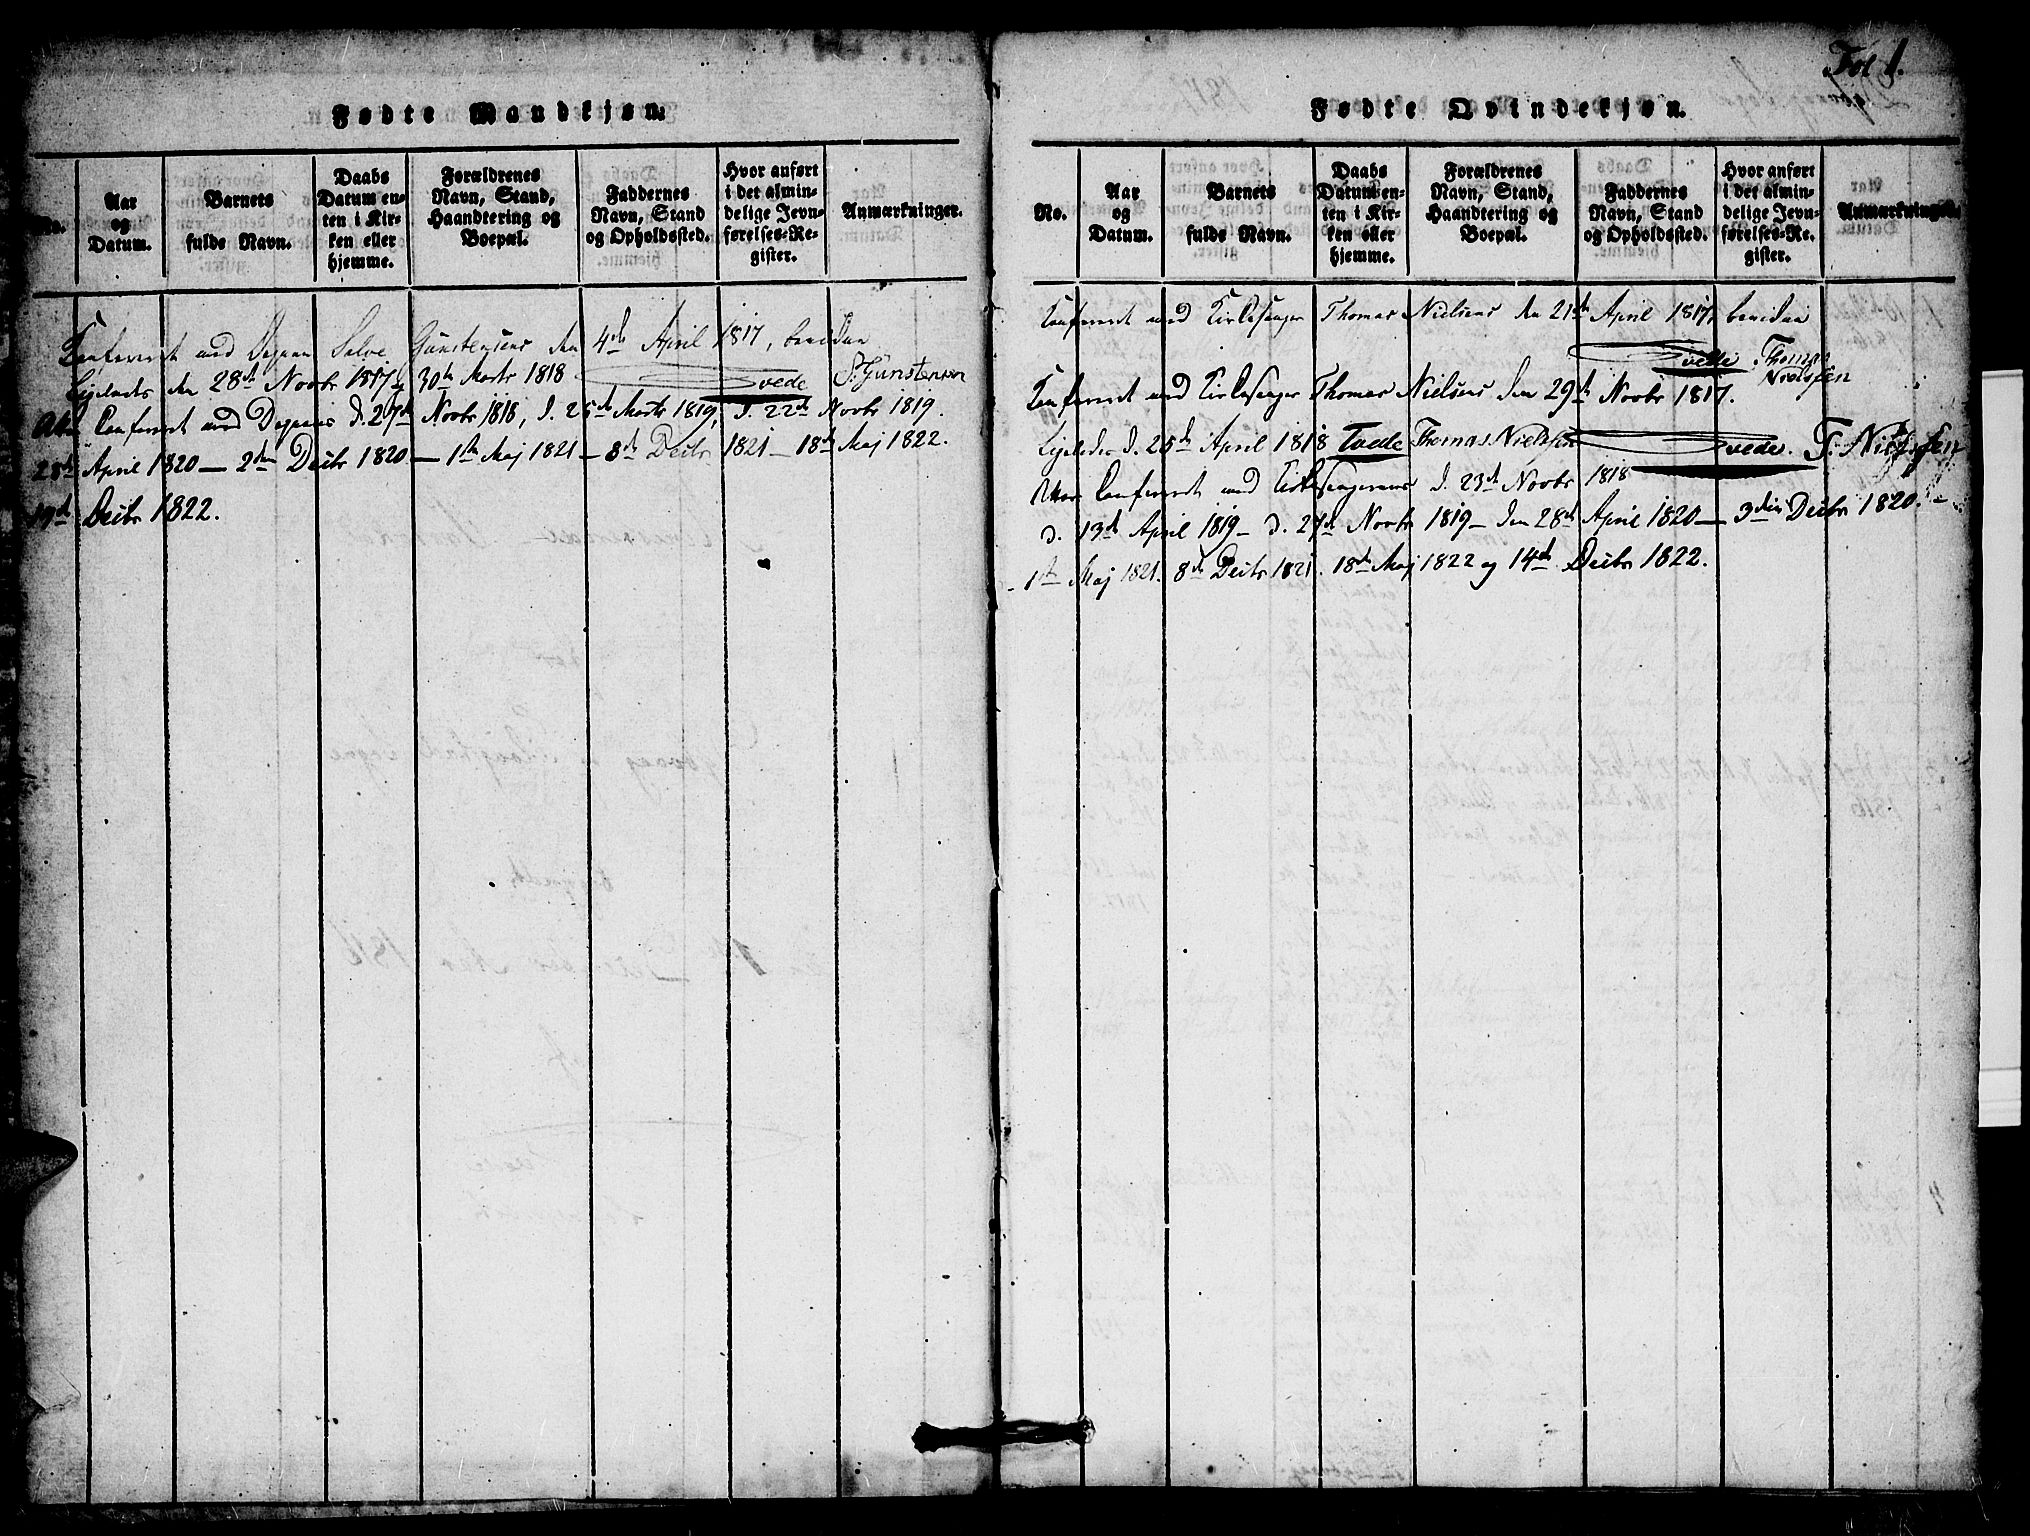 Fødte Mandkjøn.
No.
Aar og Datum.
Barnets fulde Navn.
Daabs Datum enten i Kirken eller hjemme.
Forældrenes Navn, Stand, Haandtering og Boepæl.
Faddernes Navn, Stand og Opholdssted.
Hvor anført i det almindelige Jevnførelses-Register.
Anmærkninger.
Confereret med Degnen Salve Gunstensens den 4de April 1817, bevidner
Ligeledes den 28de Novbr 1817 og 30te Marts 1818 Tvede S. Gunstensen
Atter Confereret med Degnens d. 27de Novbr 1818, d. 25de Marts 1819, d. 22de Novbr 1819.
28de April 1820 — 2den Decbr 1820 — 1ste Maj 1821 — 8de Decbr 1821 — 18de Maj 1822.
Decbr 1822.
Fol 1.
Fødte Qvindekjøn.
No.
Aar og Datum.
Barnets fulde Navn.
Daabs Datum enten i Kirken eller hjemme.
Forældrenes Navn, Stand, Haandtering og Boepæl.
Faddernes Navn, Stand og Opholdssted.
Hvor anført i det almindelige Jevnførelses-Register.
Anmærkninger.
Confereret med Kirkesanger Thomas Nielsens den 21de April 1817, bevidner
Tvede. Thomas Nielsen
Confereret med Kirkesanger Thomas Nielsens den 29de Novbr 1817.
Ligeledes d. 25de April 1818 Tvede Thomas Nielsen Tvede. T. Nielsen
Atter Confereret med Kirkesangerens d. 23de Novbr 1818
d. 13de April 1819 — d. 27de Novbr 1819 — den 28de April 1820 — 3die Decbr 1820. —
1ste Maj 1821. 8de Decbr 1821. 18de Maj 1822 og 14de Decbr 1822.